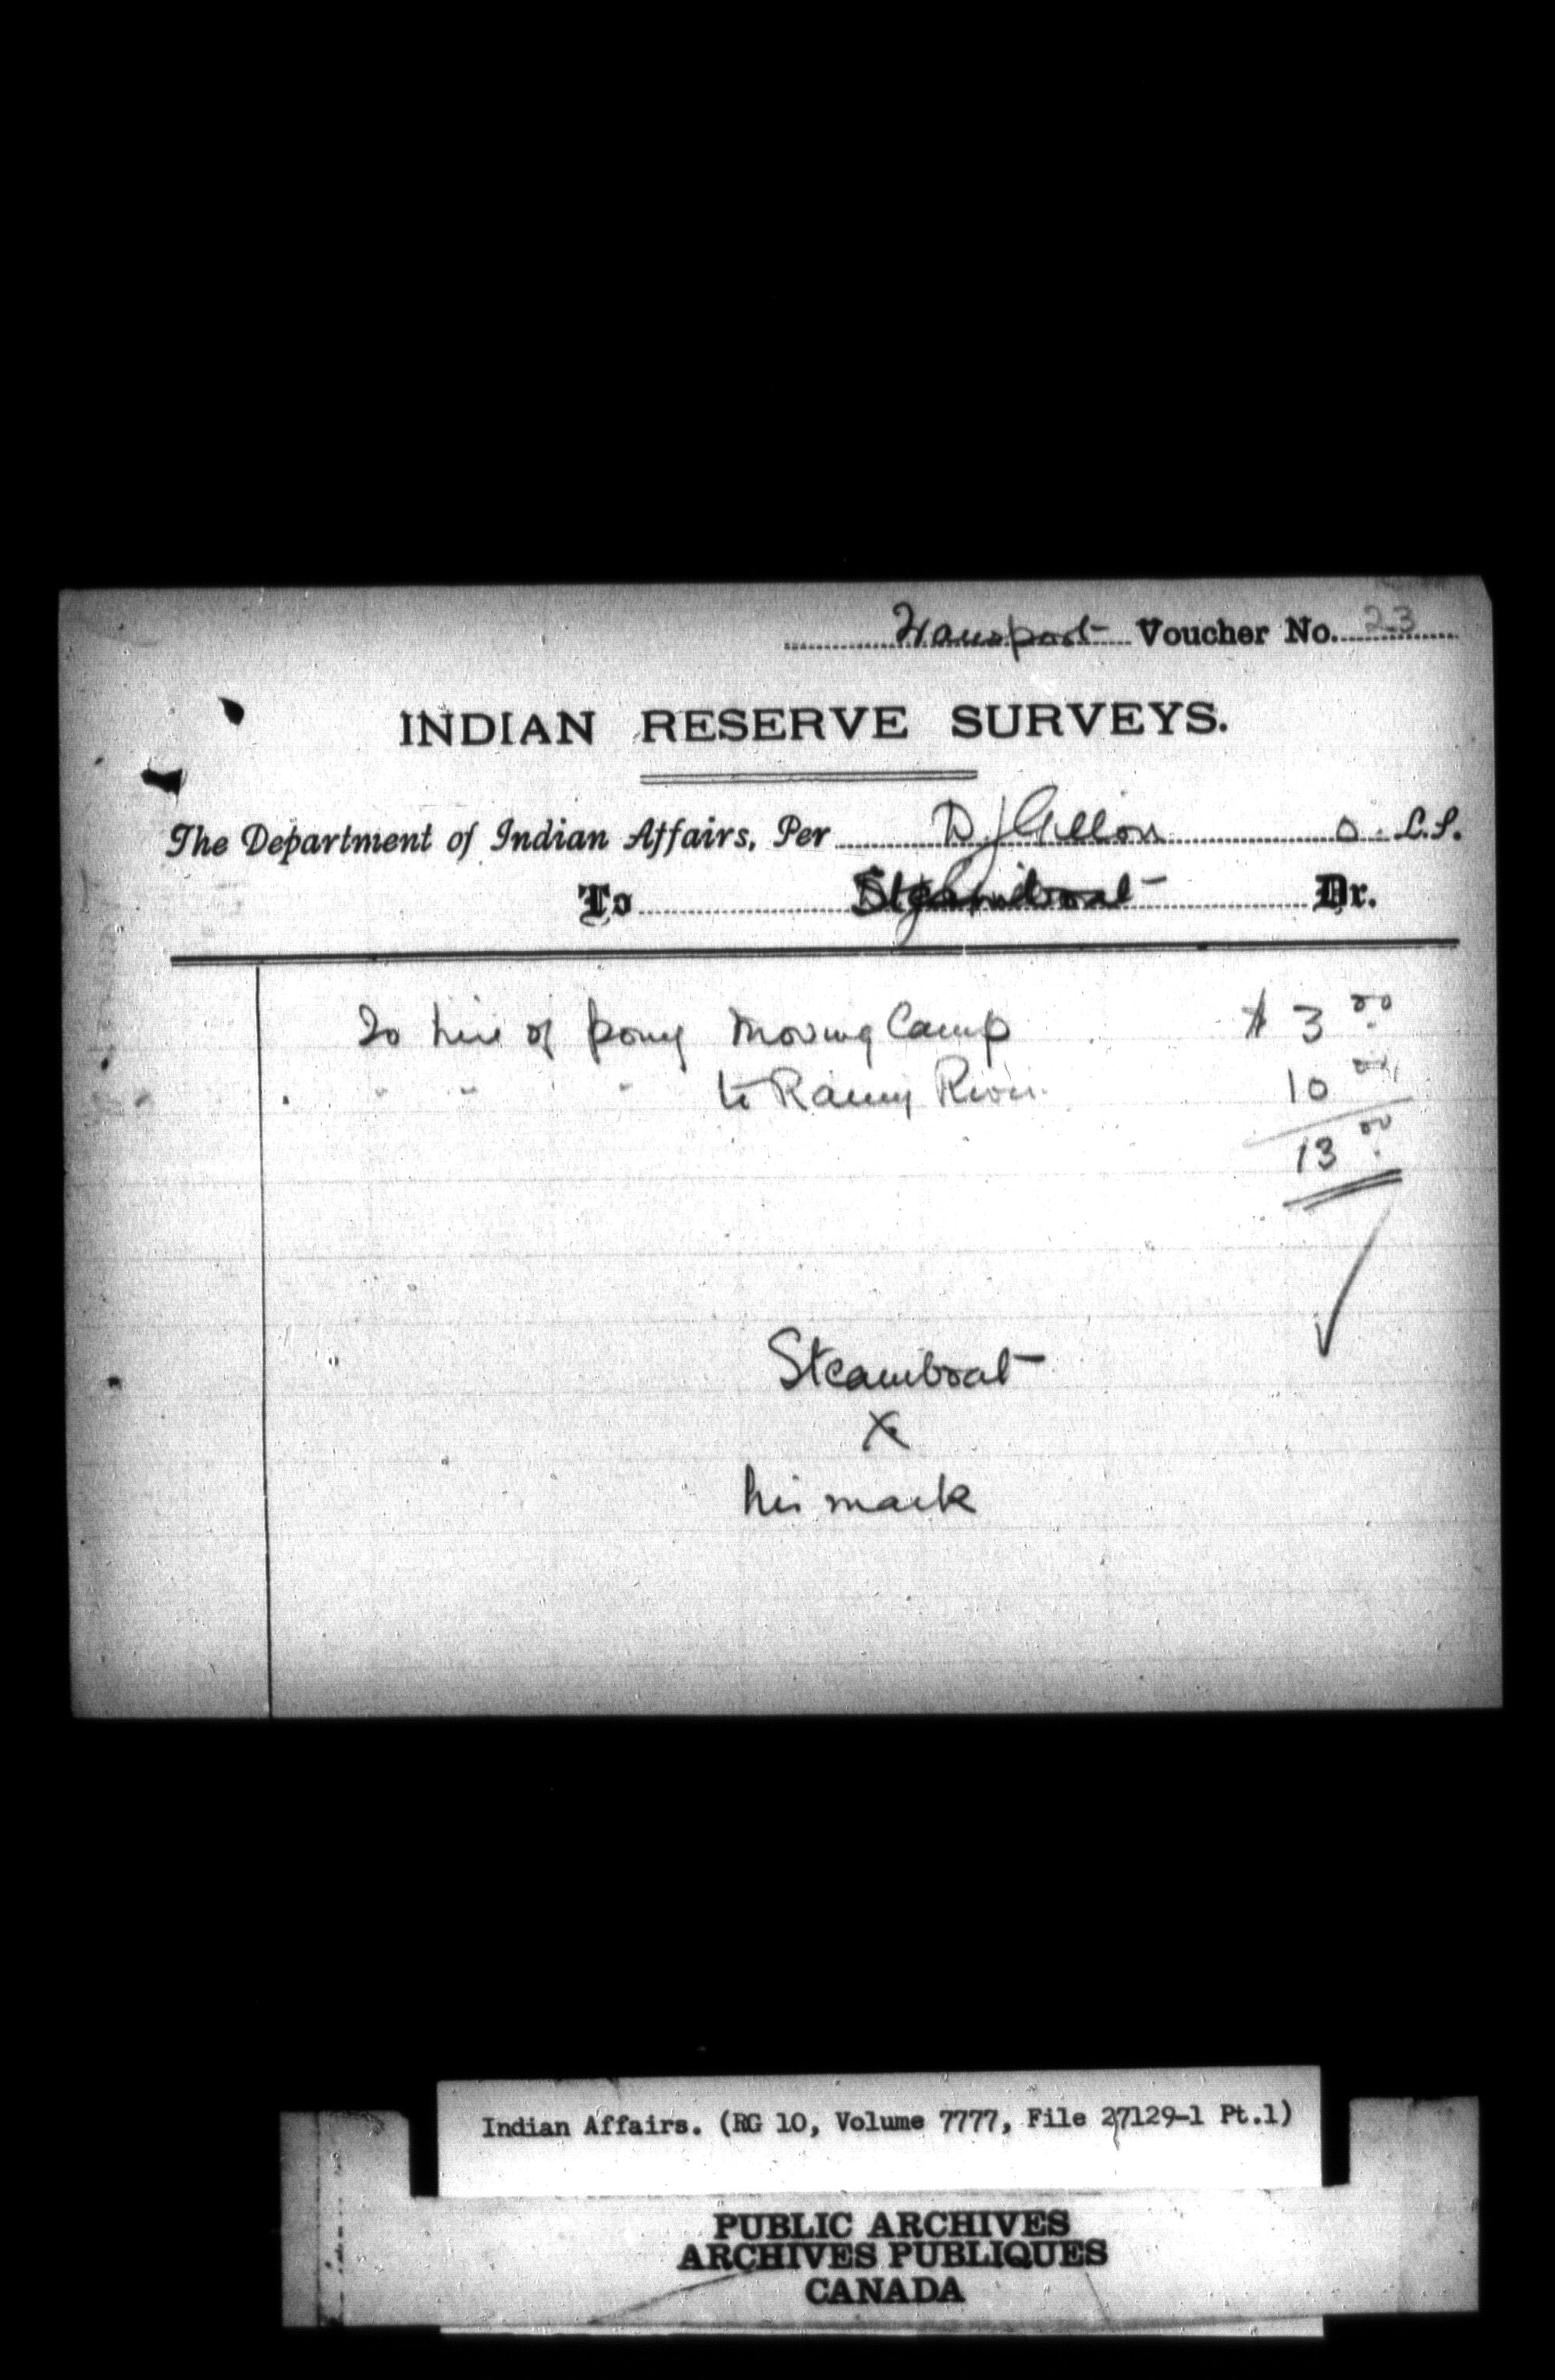 Transport Voucher No. 23
INDIAN RESERVE SURVEYS.
The Department of Indian Affairs, Per D J Gillon O. L.S.
To Steamboat Dr.
To hire of pony moving Camp $ 3 00
" " " to Rainy River 10 00
13 00
Steamboat
X
his mark
Indian Affairs. (RG 10, Volume 7777, File 27129-1 Pt.1)
PUBLIC ARCHIVES
ARCHIVES PUBLIQUES
CANADA